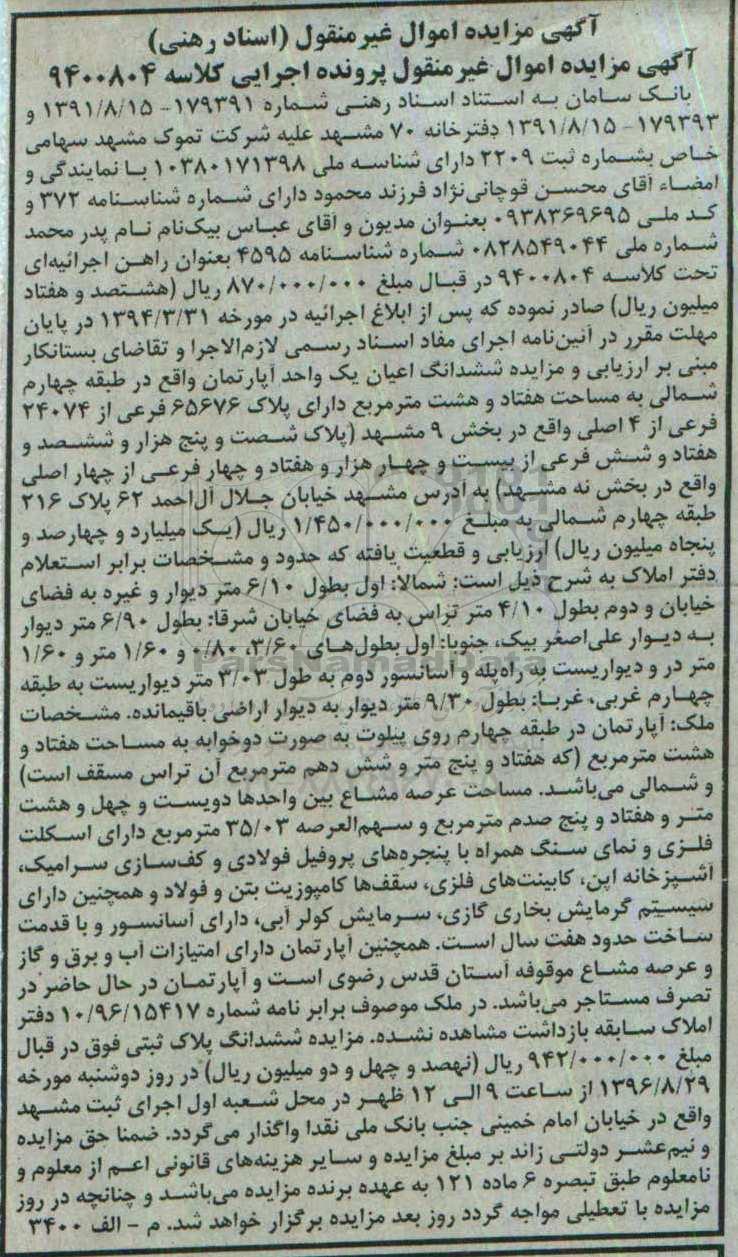 آگهی مزایده اموال غیرمنقول (اسناد رهنی)
آگهی مزایده اموال غیرمنقول پرونده اجرایی کلاسه ۹۴۰۰۸۰۴
بانک سامان به استناد اسناد رهنی شماره ۱۷۹۳۹۱- ۱۳۹۱/۸/۱۵ و
۱۷۹۳۹۳- ۱۳۹۱/۸/۱۵ دفترخانه ۷۰ مشهد علیه شرکت تموک مشهد سهامی
خاص بشماره ثبت ۲۲۰۹ دارای شناسه ملی ۱۰۳۸۰۱۷۱۳۹۸ با نمایندگی و
امضاء آقای محسن قوچانی‌نژاد فرزند محمود دارای شماره شناسنامه ۳۷۲ و
کد ملی ۰۹۳۸۳۶۹۶۹۵ بعنوان مدیون و اقای عباس بیک‌نام نام پدر محمد
شماره ملی ۰۸۲۸۵۴۹۰۴۴ شماره شناسنامه ۴۵۹۵ بعنوان راهن اجرائیه‌ای
تحت کلاسه ۹۴۰۰۸۰۴ در قبال مبلغ ۸۷۰/۰۰۰/۰۰۰ ریال (هشتصد و هفتاد
میلیون ریال) صادر نموده که پس از ابلاغ اجرائیه در مورخه ۱۳۹۴/۳/۳۱ در پایان
مهلت مقرر در آئین‌نامه اجرای مفاد اسناد رسمی لازم‌الاجرا و تقاضای بستانکار
مبنی بر ارزیابی و مزایده ششدانگ اعیان یک واحد آپارتمان واقع در طبقه چهارم
شمالی به مساحت هفتاد و هشت مترمربع دارای پلاک ۶۵۶۷۶ فرعی از ۲۴۰۷۴
فرعی از ۴ اصلی واقع در بخش ۹ مشهد (پلاک شصت و پنج هزار و ششصد و
هفتاد و شش فرعی از بیست و چهار هزار و هفتاد و چهار فرعی از چهار اصلی
واقع در بخش نه مشهد) به آدرس مشهد خیابان جلال آل‌احمد ۶۲ پلاک ۲۱۶
طبقه چهارم شمالی به مبلغ ۱/۴۵۰/۰۰۰/۰۰۰ ریال (یک میلیارد و چهارصد و
پنجاه میلیون ریال) ارزیابی و قطعیت یافته که حدود و مشخصات برابر استعلام
دفتر املاک به شرح ذیل است: شمالا: اول بطول ۶/۱۰ متر دیوار و غیره به فضای
خیابان و دوم بطول ۴/۱۰ متر تراس به فضای خیابان شرقا: بطول ۶/۹۰ متر دیوار
به دیوار علی‌اصغر بیک، جنوبا: اول بطول‌های ۳/۶۰، ۰/۸۰ و ۱/۶۰ متر و ۱/۶۰
متر در و دیواریست به راه‌پله و آسانسور دوم به طول ۳/۰۳ متر دیواریست به طبقه
چهارم غربی، غربا: بطول ۹/۳۰ متر دیوار به دیوار اراضی باقیمانده. مشخصات
ملک: آپارتمان در طبقه چهارم روی پیلوت به صورت دوخوابه به مساحت هفتاد و
هشت مترمربع (که هفتاد و پنج متر و شش دهم مترمربع آن تراس مسقف است)
و شمالی می‌باشد. مساحت عرصه مشاع بین واحدها دویست و چهل و هشت
متر و هفتاد و پنج صدم مترمربع و سهم‌العرصه ۳۵/۰۳ مترمربع دارای اسکلت
فلزی و نمای سنگ همراه با پنجره‌های پروفیل فولادی و کف‌سازی سرامیک،
آشپزخانه اپن، کابینت‌های فلزی، سقف‌ها کامپوزیت بتن و فولاد و همچنین دارای
سیستم گرمایش بخاری گازی، سرمایش کولر آبی، دارای آسانسور و با قدمت
ساخت حدود هفت سال است. همچنین آپارتمان دارای امتیازات آب و برق و گاز
و عرصه مشاع موقوفه آستان قدس رضوی است و آپارتمان در حال حاضر در
تصرف مستاجر می‌باشد. در ملک موصوف برابر نامه شماره ۱۰/۹۶/۱۵۴۱۷ دفتر
املاک سابقه بازداشت مشاهده نشده. مزایده ششدانگ پلاک ثبتی فوق در قبال
مبلغ ۹۴۲/۰۰۰/۰۰۰ ریال (نهصد و چهل و دو میلیون ریال) در روز دوشنبه مورخه
۱۳۹۶/۸/۲۹ از ساعت ۹ الی ۱۲ ظهر در محل شعبه اول اجرای ثبت مشهد
واقع در خیابان امام خمینی جنب بانک ملی نقدا واگذار می‌گردد. ضمنا حق مزایده
و نیم‌عشر دولتی زائد بر مبلغ مزایده و سایر هزینه‌های قانونی اعم از معلوم و
نامعلوم طبق تبصره ۶ ماده ۱۲۱ به عهده برنده مزایده می‌باشد و چنانچه در روز
مزایده با تعطیلی مواجه گردد روز بعد مزایده برگزار خواهد شد. م - الف ۳۴۰۰
ParsNamadData